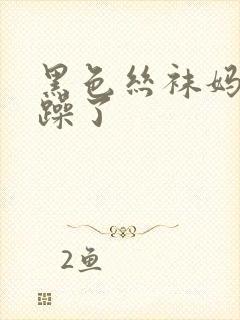 黑色丝袜妈
躁了
2鱼